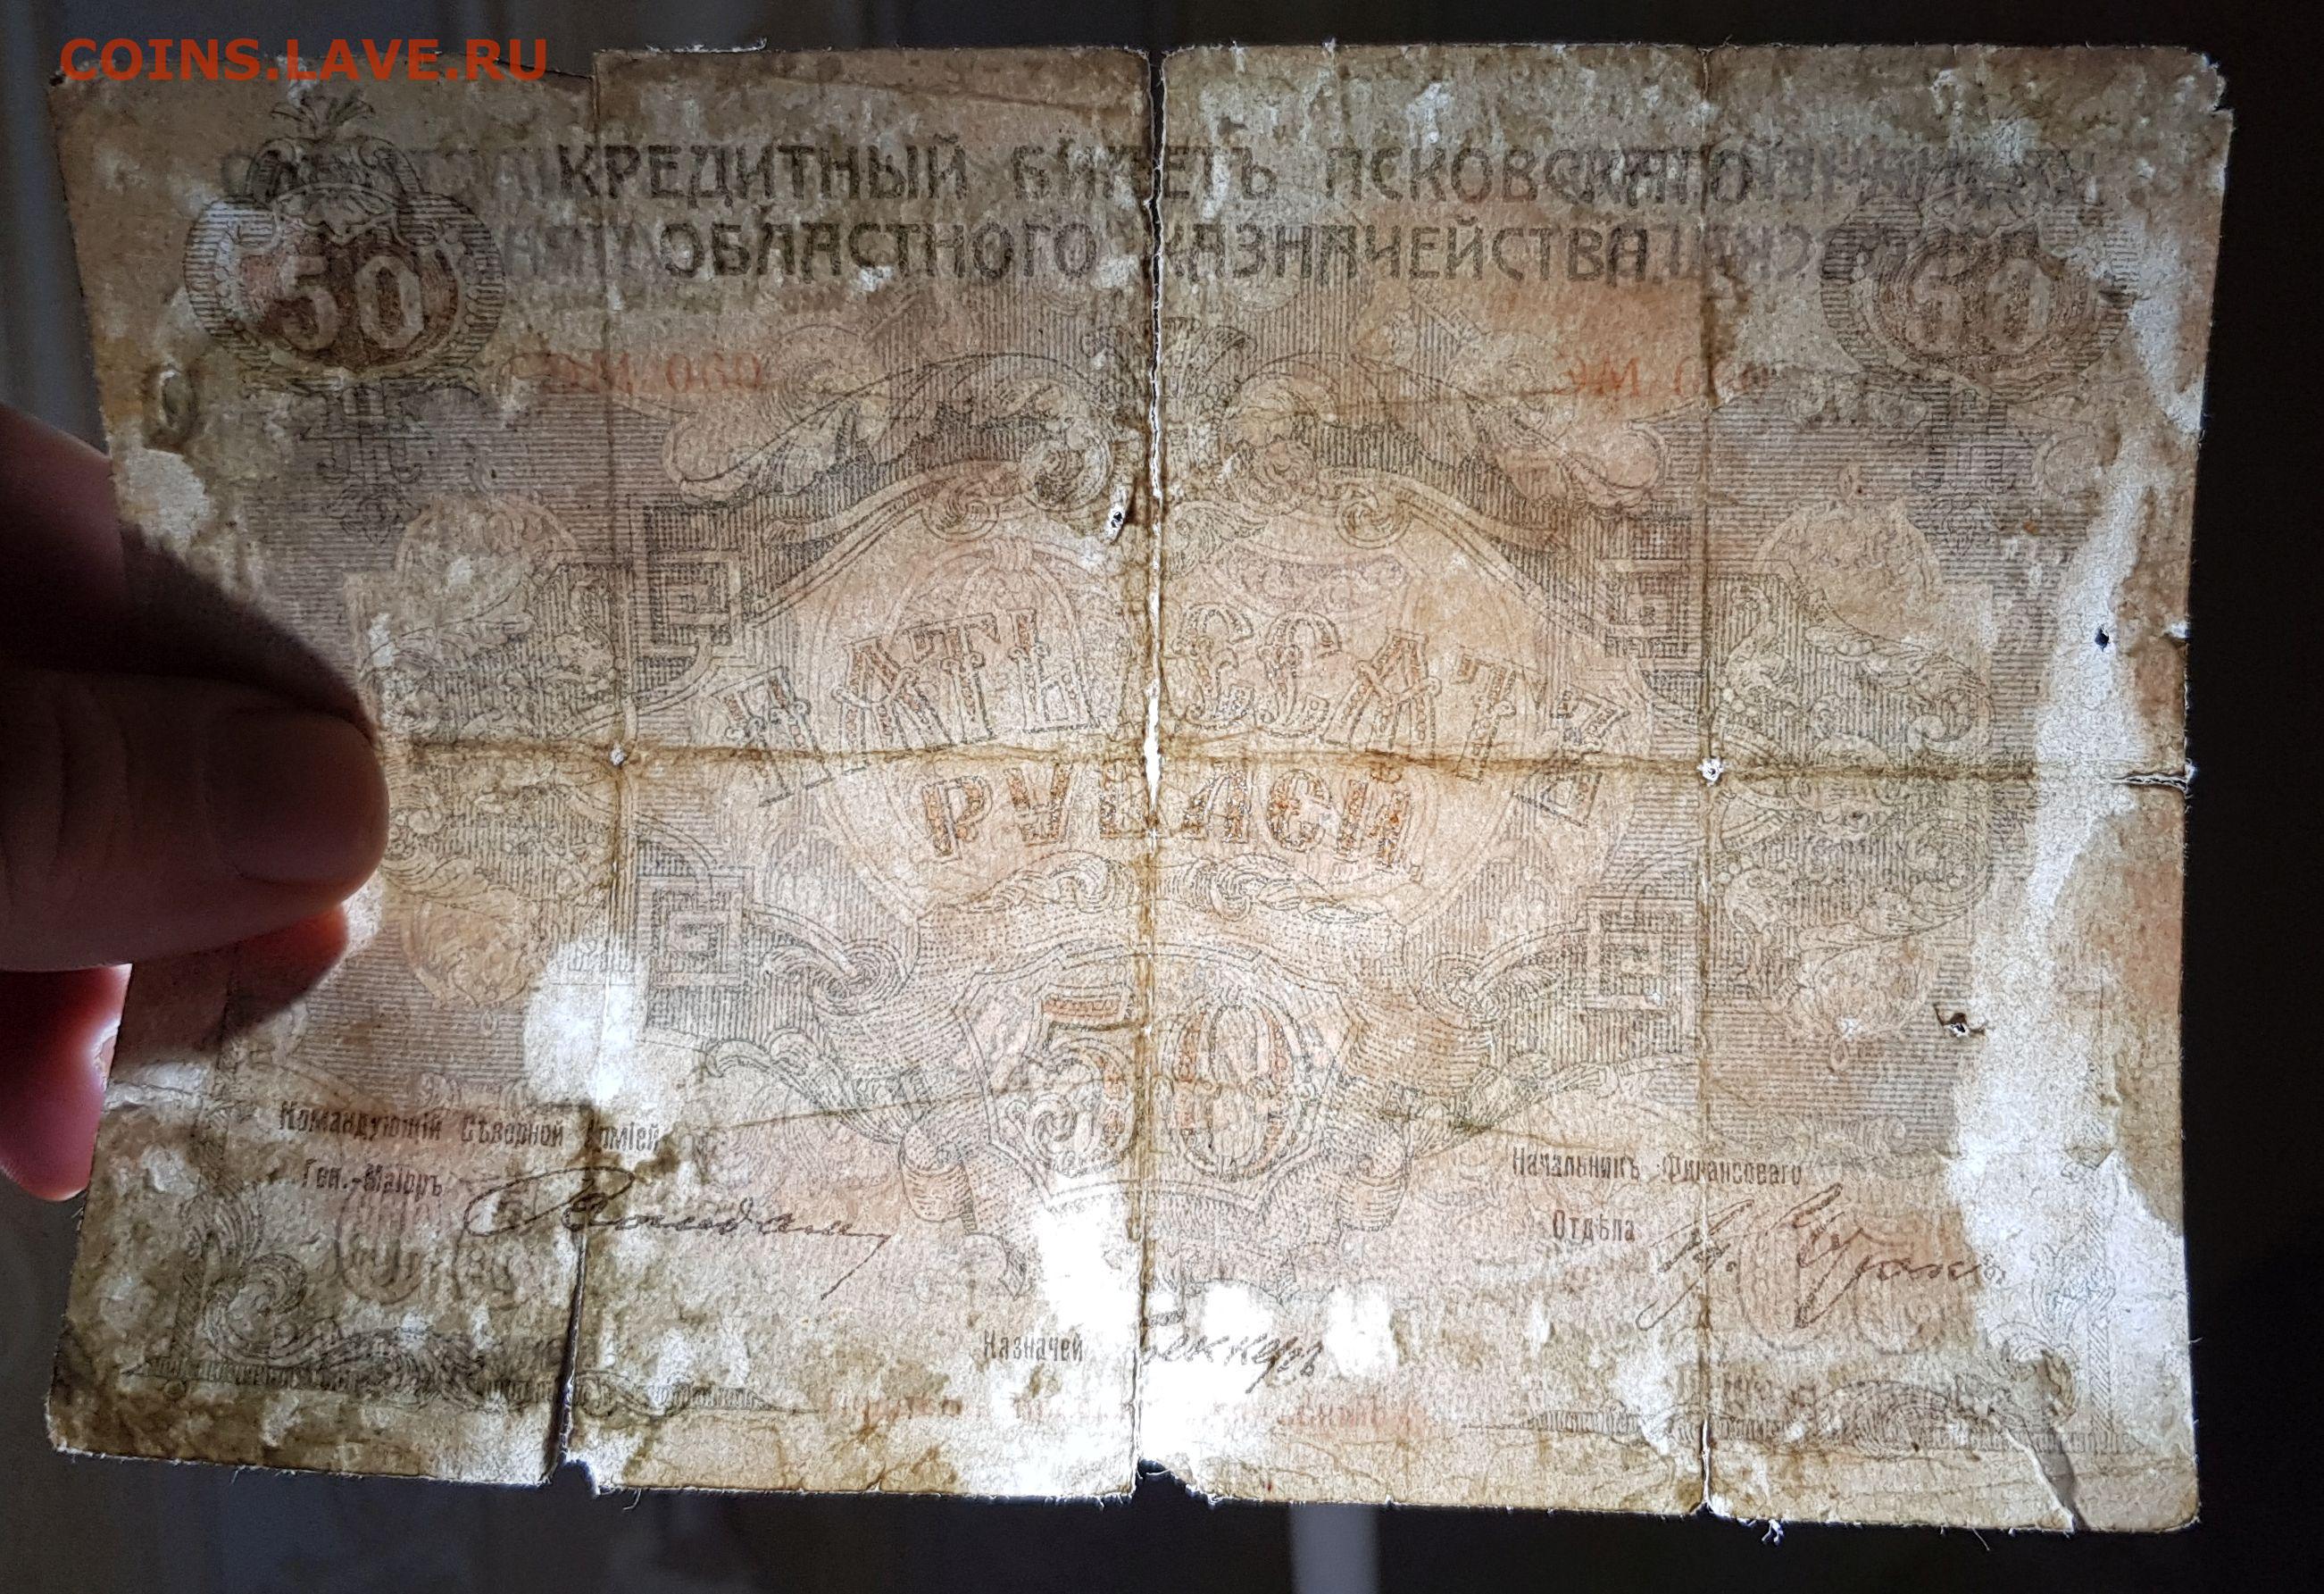 COINS.LAVE.RU
КРЕДИТНЫЙ БИЛЕТЪ ПСКОВСКАГО
ОБЛАСТНОГО КАЗНАЧЕЙСТВА
50 50
060
ПЯТЬДЕСЯТЪ
РУБЛЕЙ
50
Командующій Сѣверной Арміей
Ген.-Маіоръ
Начальникъ Финансоваго
Отдѣла
Казначей Беккеръ